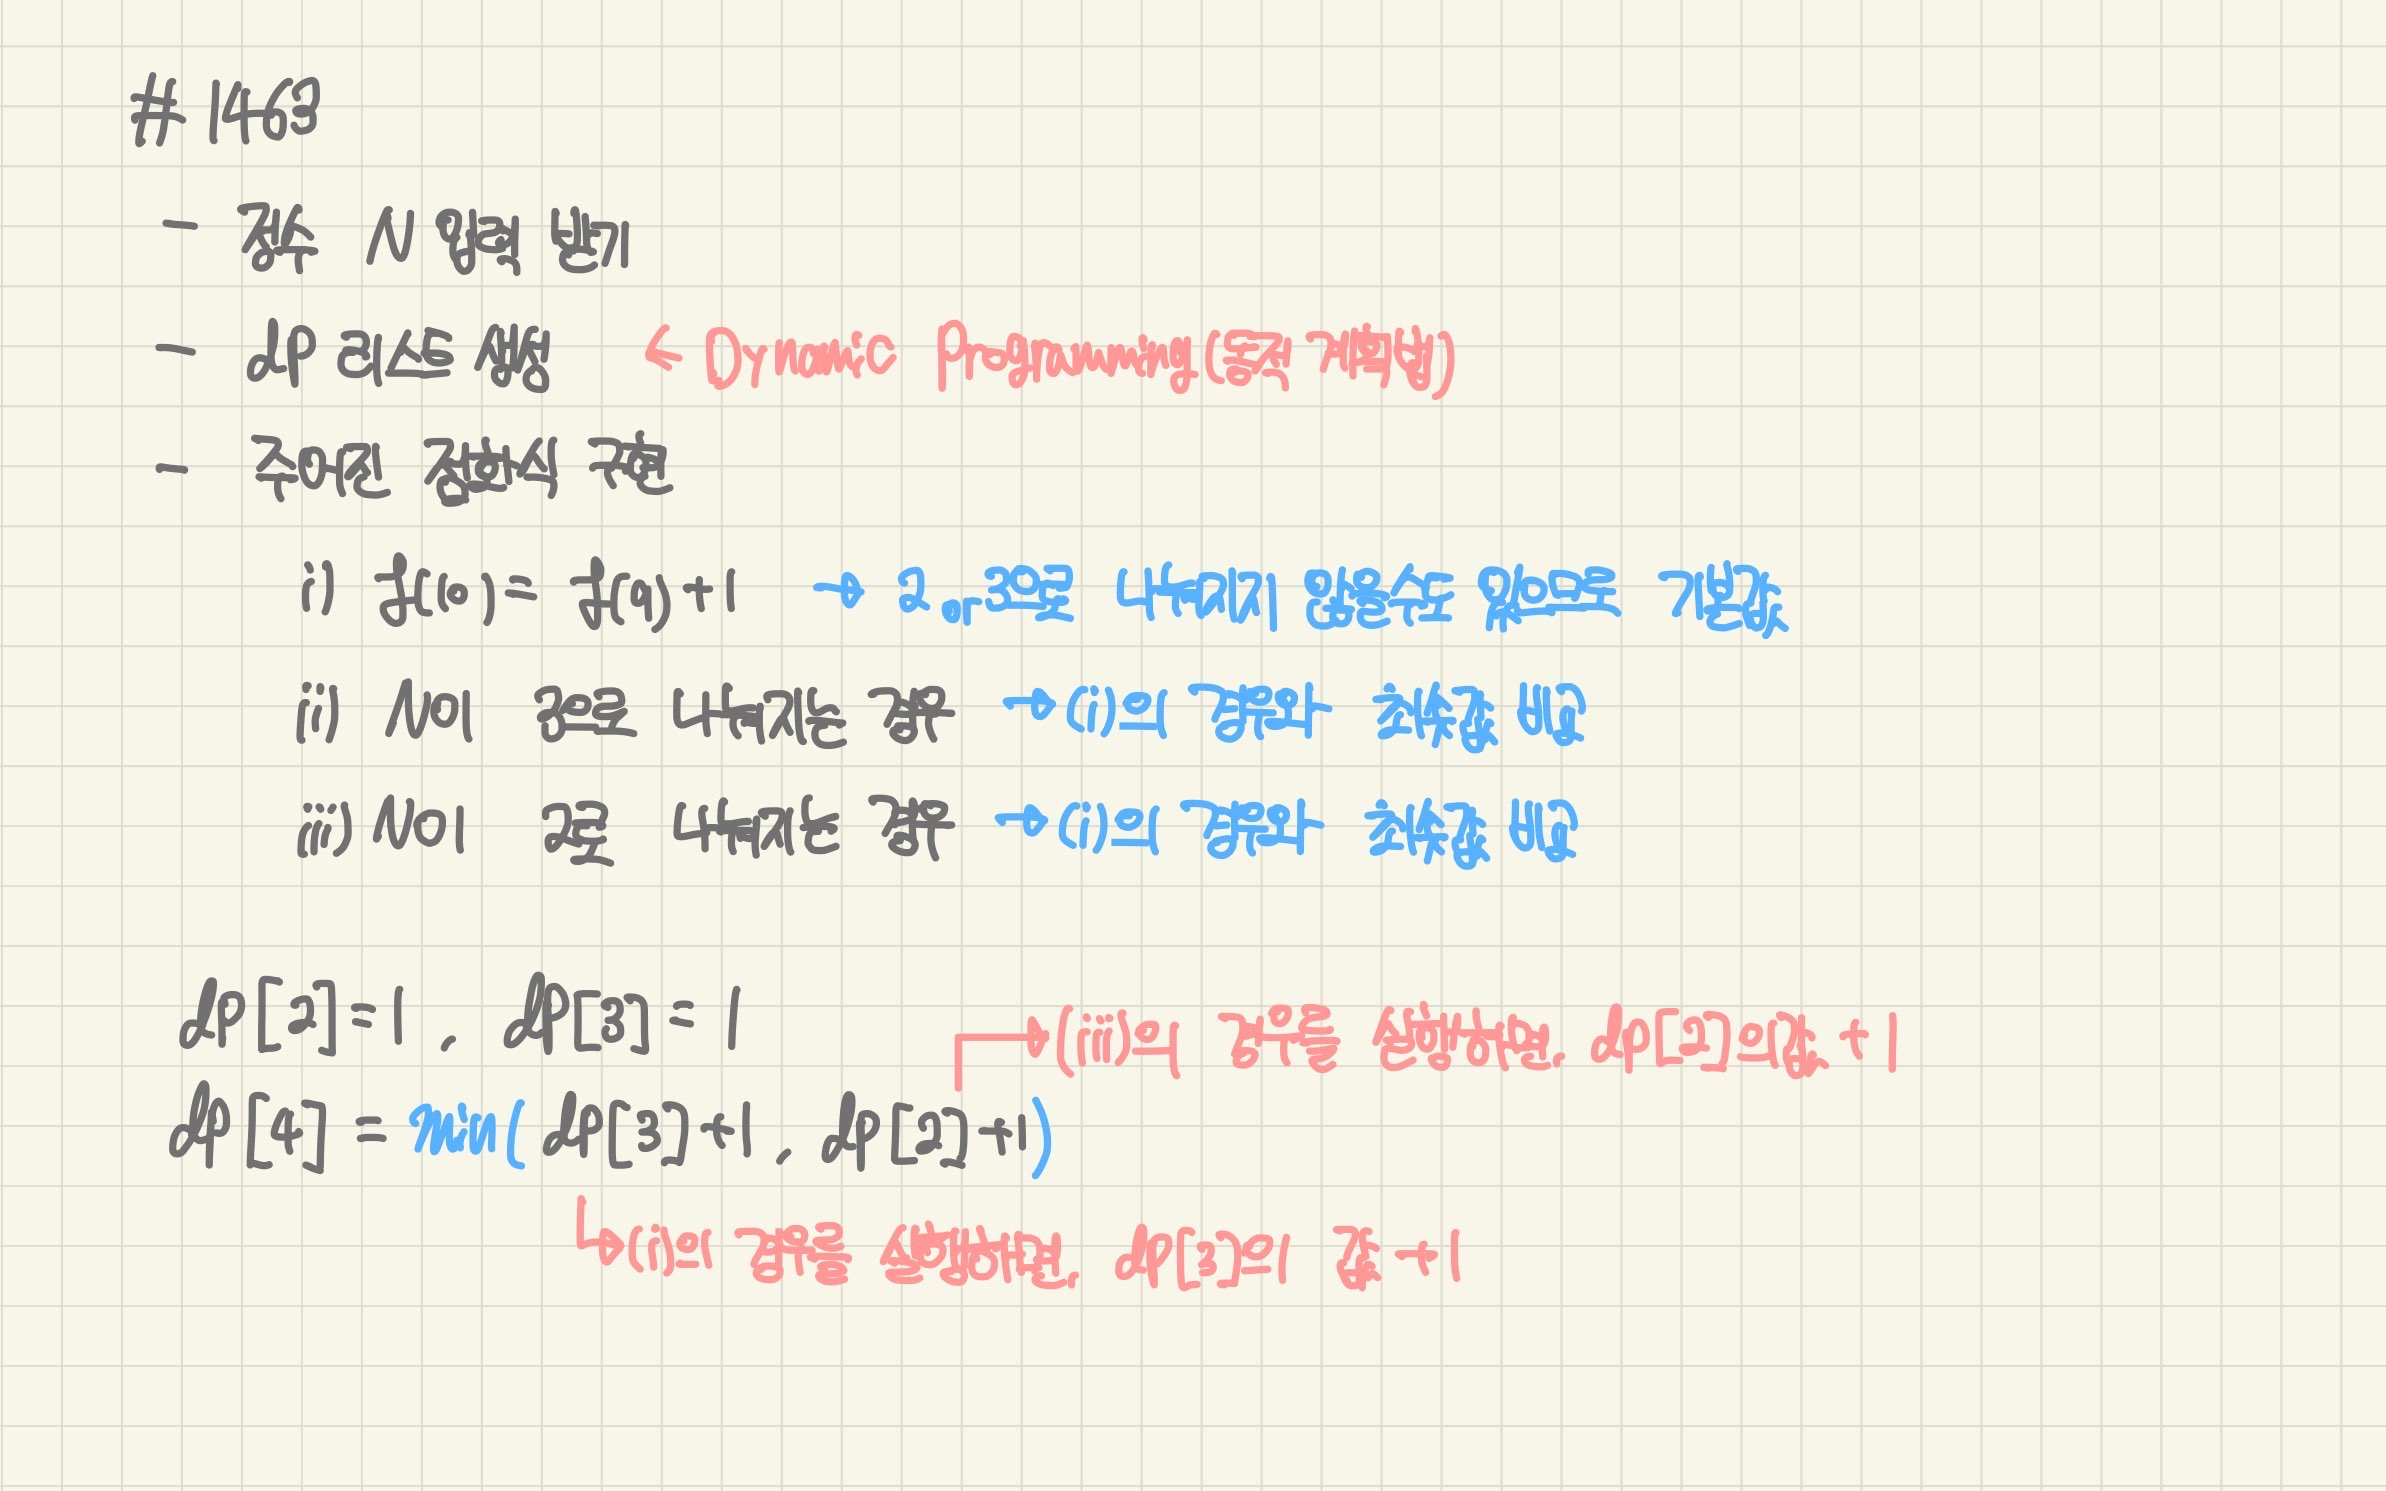 # 1463
- 정수 N 입력 받기
- dp 리스트 생성 ← Dynamic Programming (동적 계획법)
- 주어진 점화식 구현
i) f(10) = f(9)+1 → 2나 3으로 나눠지지 않을수도 있으므로 기본값
ii) N이 3으로 나눠지는 경우 → (i)의 경우와 최솟값 비교
iii) N이 2로 나눠지는 경우 → (i)의 경우와 최솟값 비교
dp[2]=1, dp[3]=1
→ (iii)의 경우를 실행하면, dp[2]의 값 +1
dp[4] = min( dp[3]+1, dp[2]+1)
→ (i)의 경우를 실행하면, dp[3]의 값 +1